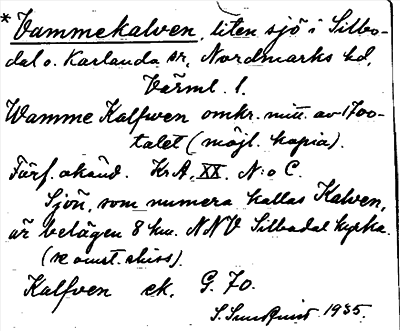 * Vammekalven, liten sjö i Silbo-
dal o. Karlanda sr, Nordmarks hd,
Värml. l.
Wamme Kalfwen omkr. mitt. av 1700-
talet (möjl. kopia).
Förf. okänd. Kr.A. XX. N:o C.
Sjön, som numera kallas Kalven,
är belägen 8 km. NNV Silbodal kyrka.
Kalfven ek. G. 70.
S. Sundquist 1935.